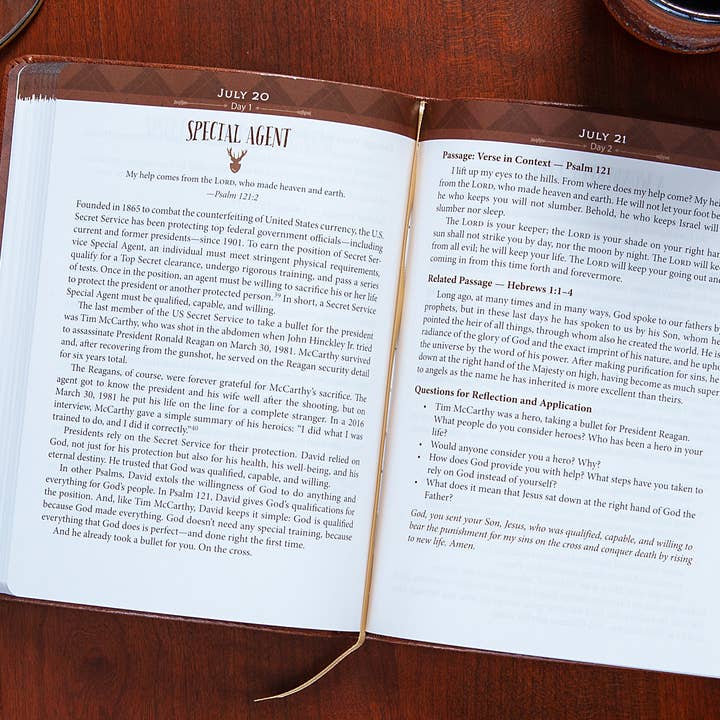 JULY 20
Day 1
SPECIAL AGENT
My help comes from the LORD, who made heaven and earth.
—Psalm 121:2
Founded in 1865 to combat the counterfeiting of United States currency, the U.S.
Secret Service has been protecting top federal government officials—including
current and former presidents—since 1901. To earn the position of Secret Ser-
vice Special Agent, an individual must meet stringent physical requirements,
qualify for a Top Secret clearance, undergo rigorous training, and pass a series
of tests. Once in the position, an agent must be willing to sacrifice his or her life
to protect the president or another protected person.39 In short, a Secret Service
Special Agent must be qualified, capable, and willing.
The last member of the US Secret Service to take a bullet for the president
was Tim McCarthy, who was shot in the abdomen when John Hinckley Jr. tried
to assassinate President Ronald Reagan on March 30, 1981. McCarthy survived
and, after recovering from the gunshot, he served on the Reagan security detail
for six years total.
The Reagans, of course, were forever grateful for McCarthy's sacrifice. The
agent got to know the president and his wife well after the shooting, but on
March 30, 1981 he put his life on the line for a complete stranger. In a 2016
interview, McCarthy gave a simple summary of his heroics: "I did what I was
trained to do, and I did it correctly."40
Presidents rely on the Secret Service for their protection. David relied on
God, not just for his protection but also for his health, his well-being, and his
eternal destiny. He trusted that God was qualified, capable, and willing.
In other Psalms, David extols the willingness of God to do anything and
everything for God's people. In Psalm 121, David gives God's qualifications for
the position. And, like Tim McCarthy, David keeps it simple: God is qualified
because God made everything. God doesn't need any special training, because
everything that God does is perfect—and done right the first time.
And he already took a bullet for you. On the cross.
JULY 21
Day 2
Passage: Verse in Context — Psalm 121
I lift up my eyes to the hills. From where does my help come? My hel
from the LORD, who made heaven and earth. He will not let your foot be
he who keeps you will not slumber. Behold, he who keeps Israel will
slumber nor sleep.
The LORD is your keeper; the LORD is your shade on your right han
sun shall not strike you by day, nor the moon by night. The LORD will kee
from all evil; he will keep your life. The LORD will keep your going out an
coming in from this time forth and forevermore.
Related Passage — Hebrews 1:1–4
Long ago, at many times and in many ways, God spoke to our fathers b
prophets, but in these last days he has spoken to us by his Son, whom he
pointed the heir of all things, through whom also he created the world. He is
radiance of the glory of God and the exact imprint of his nature, and he upho
the universe by the word of his power. After making purification for sins, he
down at the right hand of the Majesty on high, having become as much super
to angels as the name he has inherited is more excellent than theirs.
Questions for Reflection and Application
• Tim McCarthy was a hero, taking a bullet for President Reagan.
What people do you consider heroes? Who has been a hero in your
life?
• Would anyone consider you a hero? Why?
• How does God provide you with help? What steps have you taken to
rely on God instead of yourself?
• What does it mean that Jesus sat down at the right hand of God the
Father?
God, you sent your Son, Jesus, who was qualified, capable, and willing to
bear the punishment for my sins on the cross and conquer death by rising
to new life. Amen.